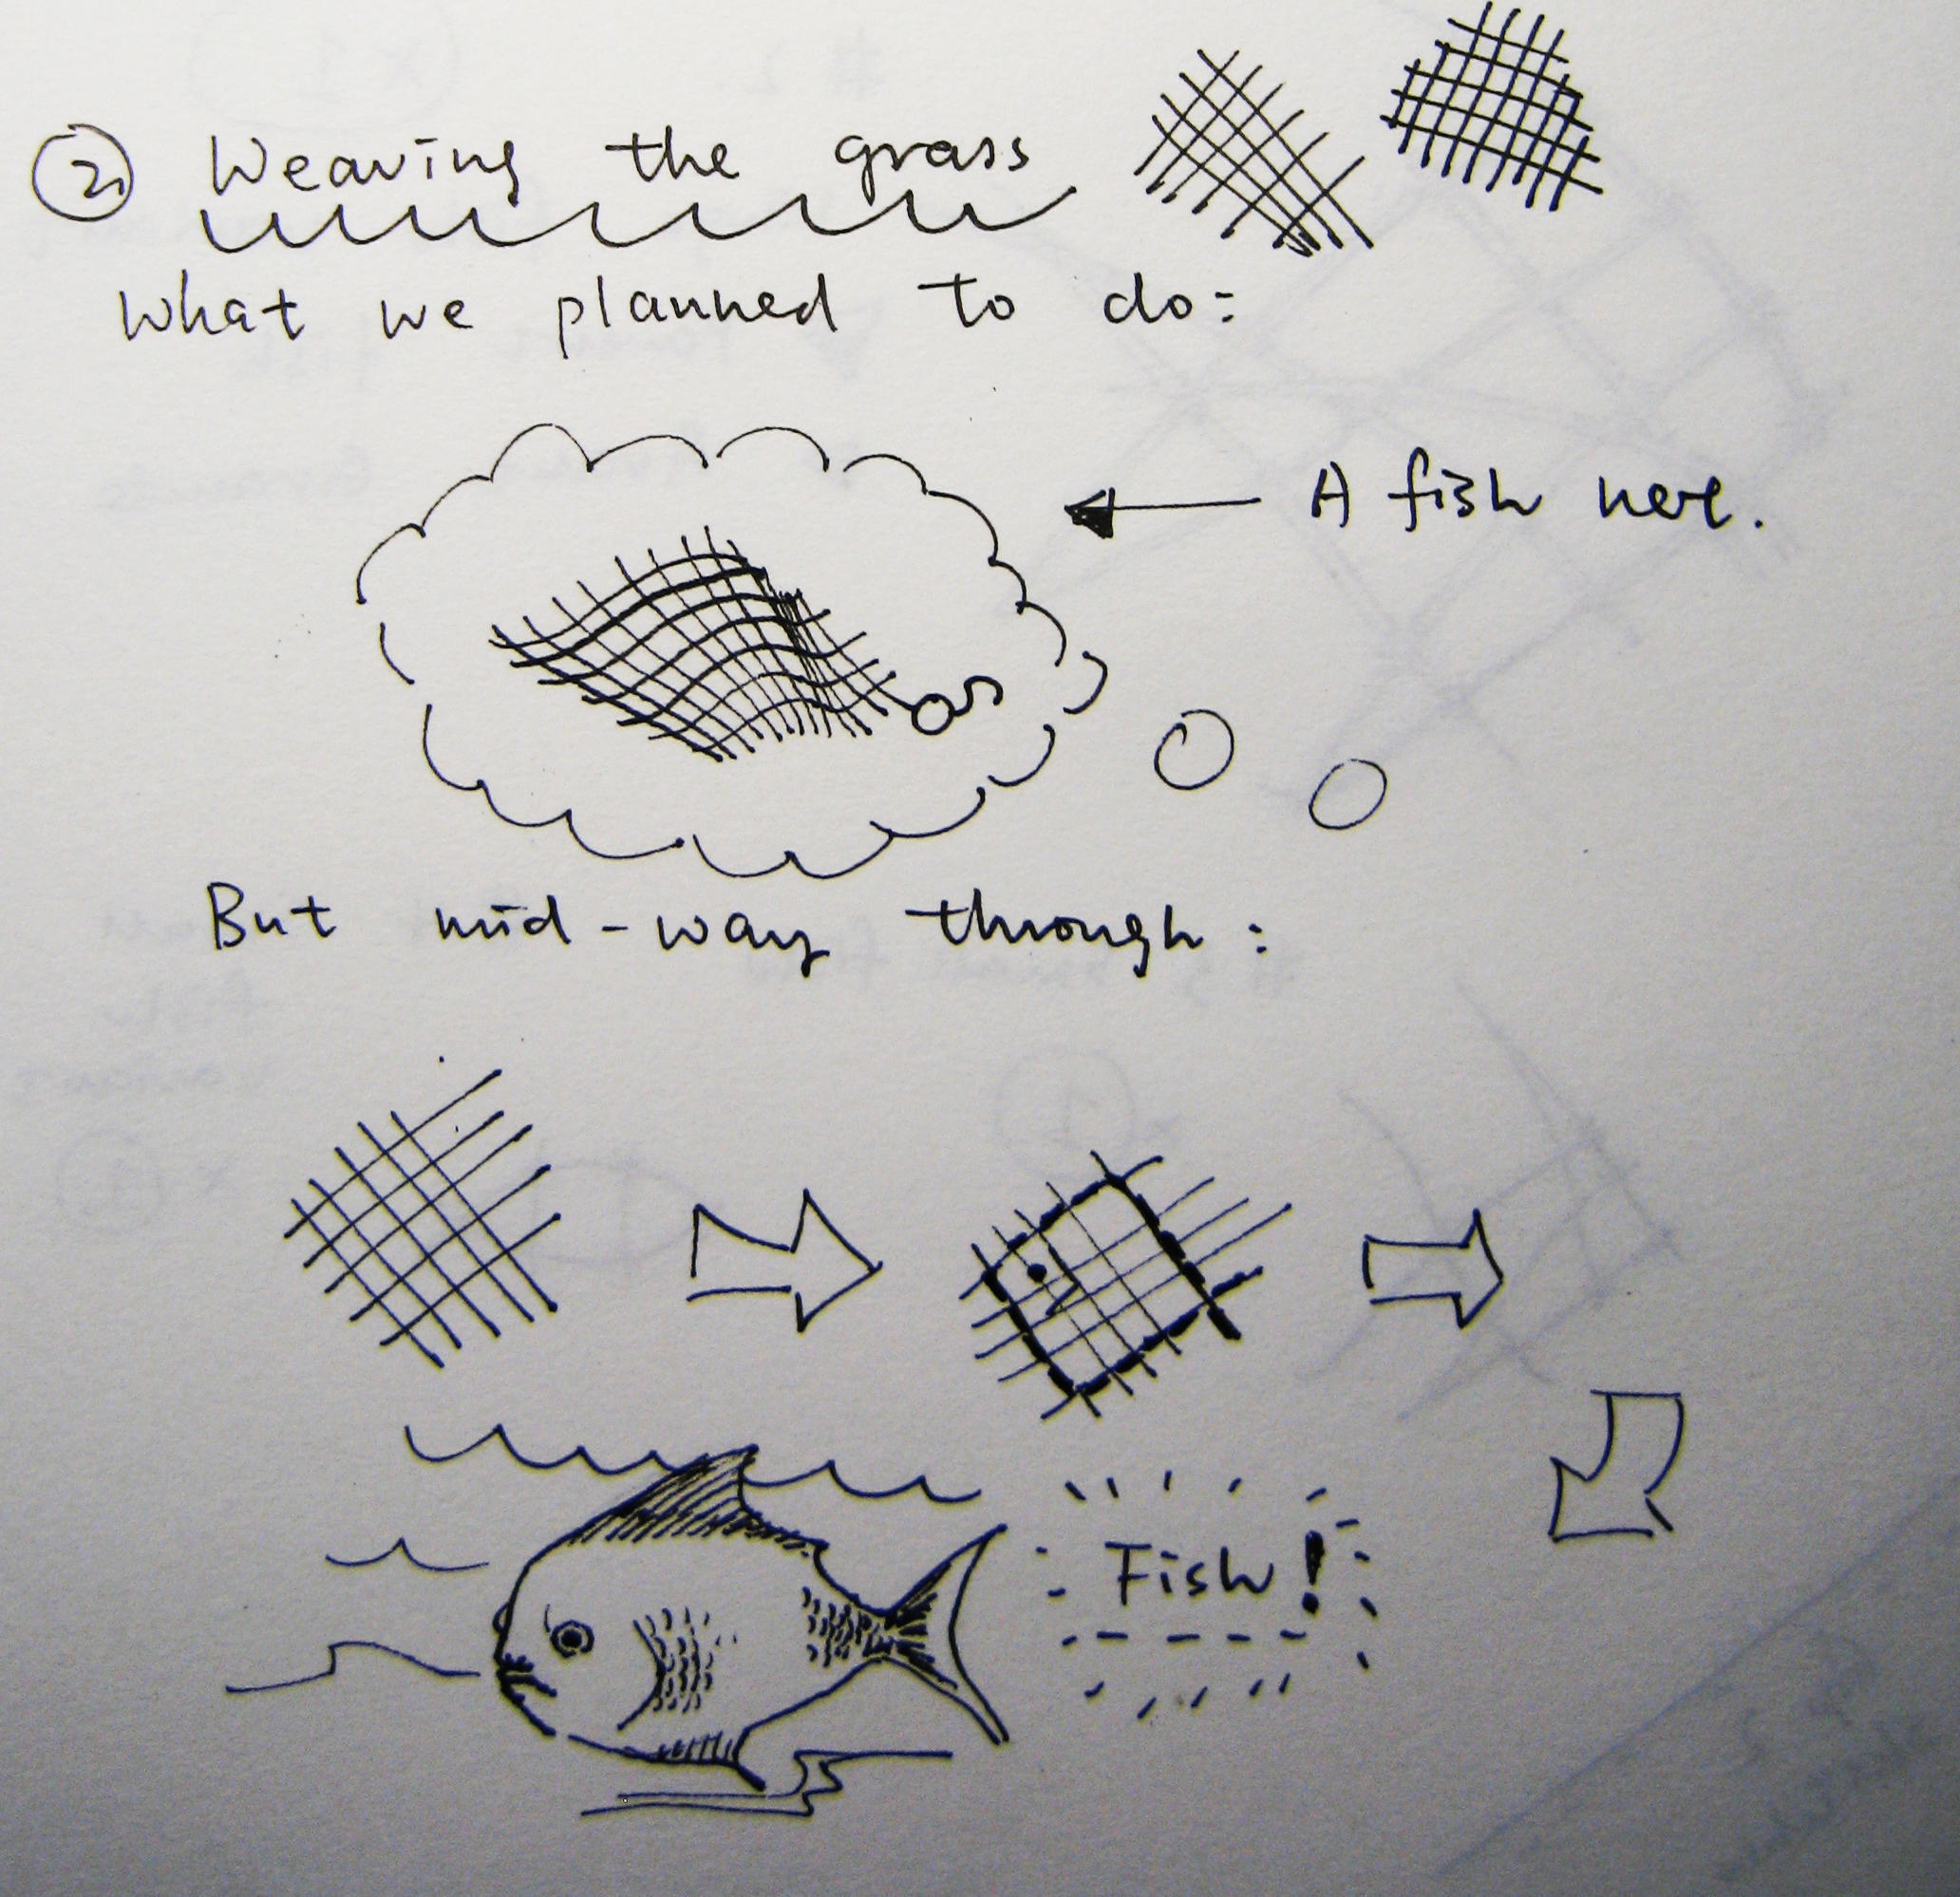 2. Weaving the grass
What we planned to do:
A fish net.
But mid-way through:
Fish!